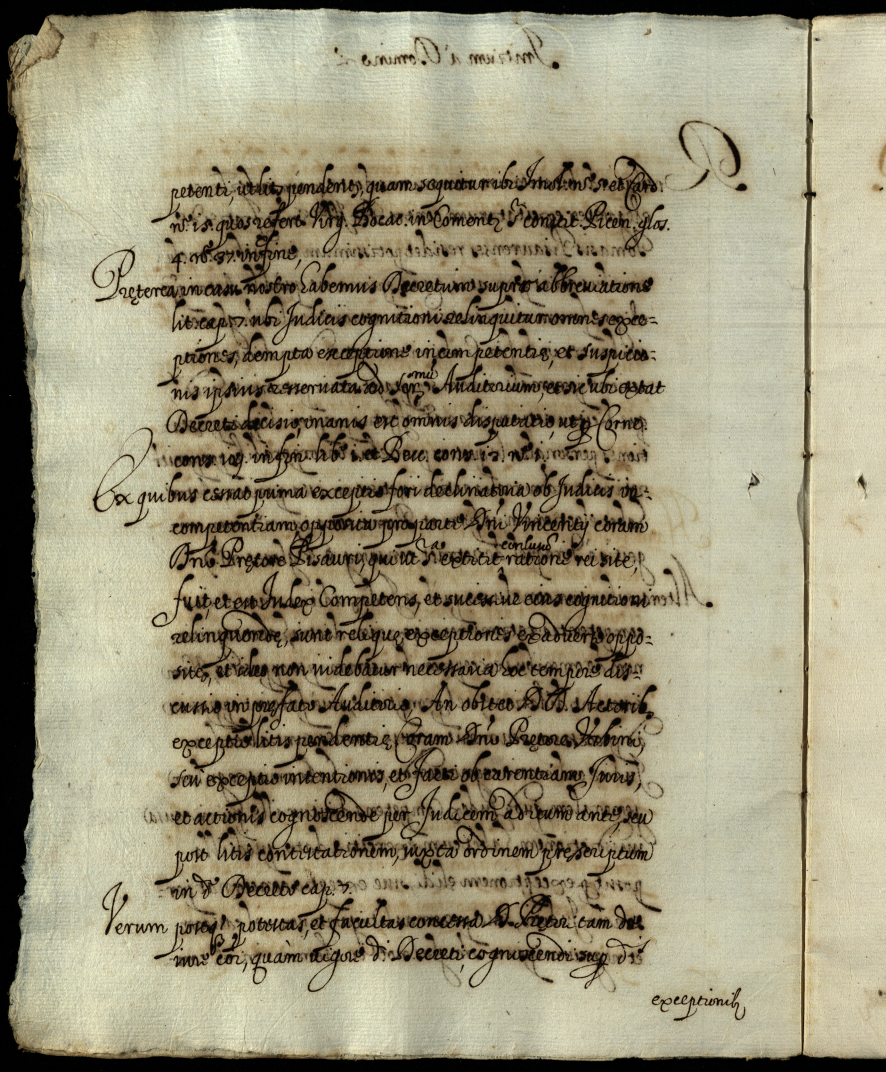 petenti, ut litis pendentis, quam sequitur ibi Imol. nu. et Card.
n.º 15. quos refert Virg. Bocac. in Coment. ad constit. Picen. glos.
4. n.º 37. in fine,
Pręterea in casu nostro habemus Decretum supra abbreviatione
lit. cap. 7. ubi Judicis cognitioni relinquitur omnes exce=
ptiones, dempta exceptione incompetentię, et suspicio=
nis ipsius reservata ad Ser.mũ Auditorium, et sic ubi extat
Decreti decisio, inanis est omnis disputatio, ut p Corne.
cons. 109. in fin. lib.º 1. et Becc. cons. 12. n.º 1.
Ex quibus cessat prima exceptio fori declinatoria ob Judicis in=
competentiam opposita pro parte Dni Vincentij coram
Dno Pretore Pisauri, qui ut extitit conclusũ ratione rei sitę,
fuit, et est Judex Competens, et successive eius cognitioni
relinquendę sunt relique exceptiones ex adverso oppo=
sitę, et ideo non videbatur necessaria hoc tempore dis=
cussio in prefato Auditorio, An obstet DD. Actorib.
exceptio litis pendentis, Coram Dno Pretore Urbini,
seu exceptio intentionis, et facti ob carentiam Juris,
et actionis cognoscende per Judicem adicumante, seu
post litis contestationem, iuxta ordinem prescriptum
in d.º Decreto cap. 7.
Verum potest potestas, et facultas concessa D. Pretori tam de
iure coi, quàm vigore d.i Decreti, cognoscendi sup d.is
exceptionib.